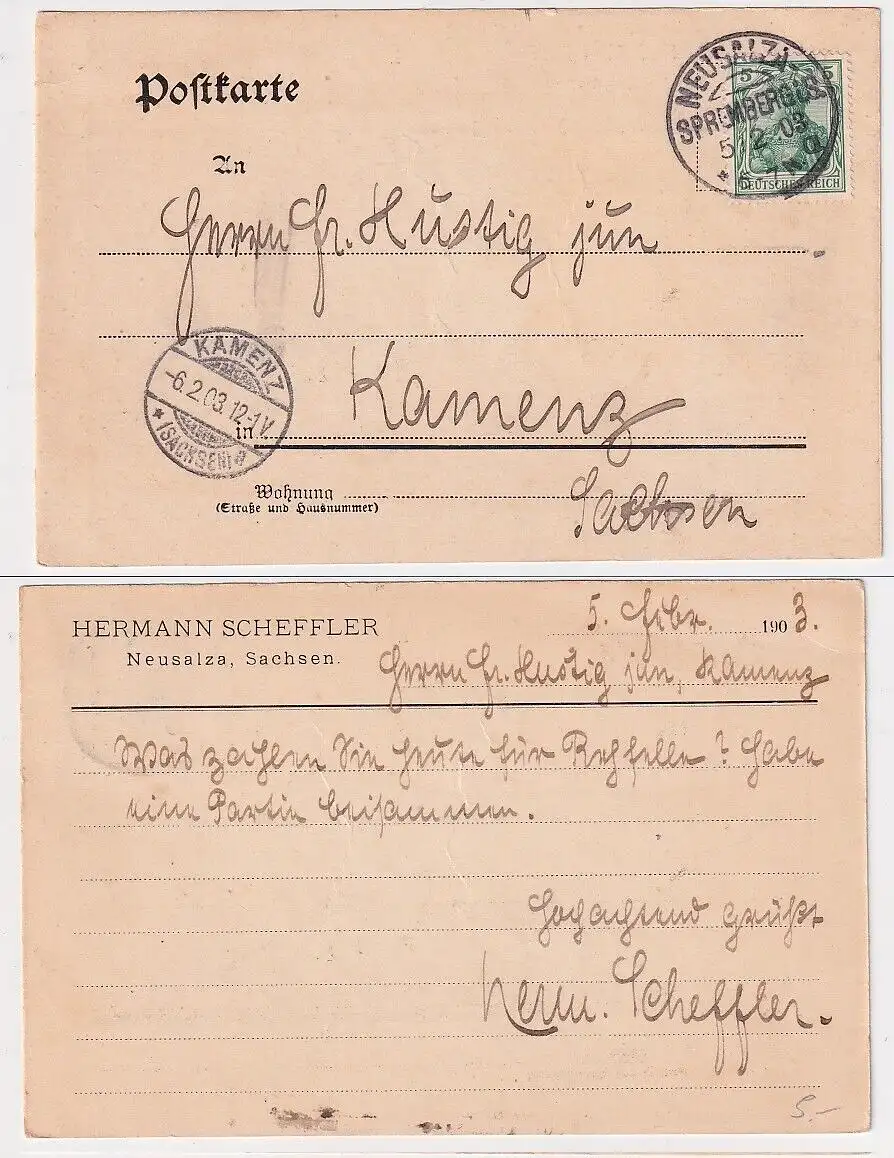 Postkarte
NEUSALZA-
SPREMBERG
5 2 03
5 5
DEUTSCHES REICH
An
Herrn Fr. Hustig jun
KAMENZ
-6.2.03.12-1V.
* (SACHSEN) *
in Kamenz
Wohnung
(Straße und Hausnummer)
Sachsen
HERMANN SCHEFFLER
Neusalza, Sachsen.
5. Febr. 1903.
Herrn Fr. Hustig jun, Kamenz
Was zahlen Sie heute für Rehfelle? Habe
eine Partie beisammen.
Hochachtend grüßt
Herm. Scheffler.
5.-